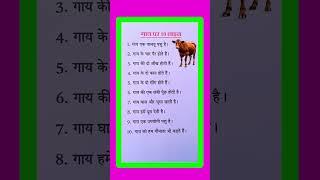 गाय पर 10 लाइन
1. गाय एक पालतू पशु है।
2. गाय के चार पैर होते हैं।
3. गाय की दो आँख होती हैं।
4. गाय के दो कान होते हैं।
5. गाय के दो सींग होते हैं।
6. गाय की एक लंबी पूँछ होती है।
7. गाय घास और भूसा खाती है।
8. गाय हमें दूध देती है।
9. गाय एक उपयोगी पशु है।
10. गाय को हम गौमाता भी कहते हैं।